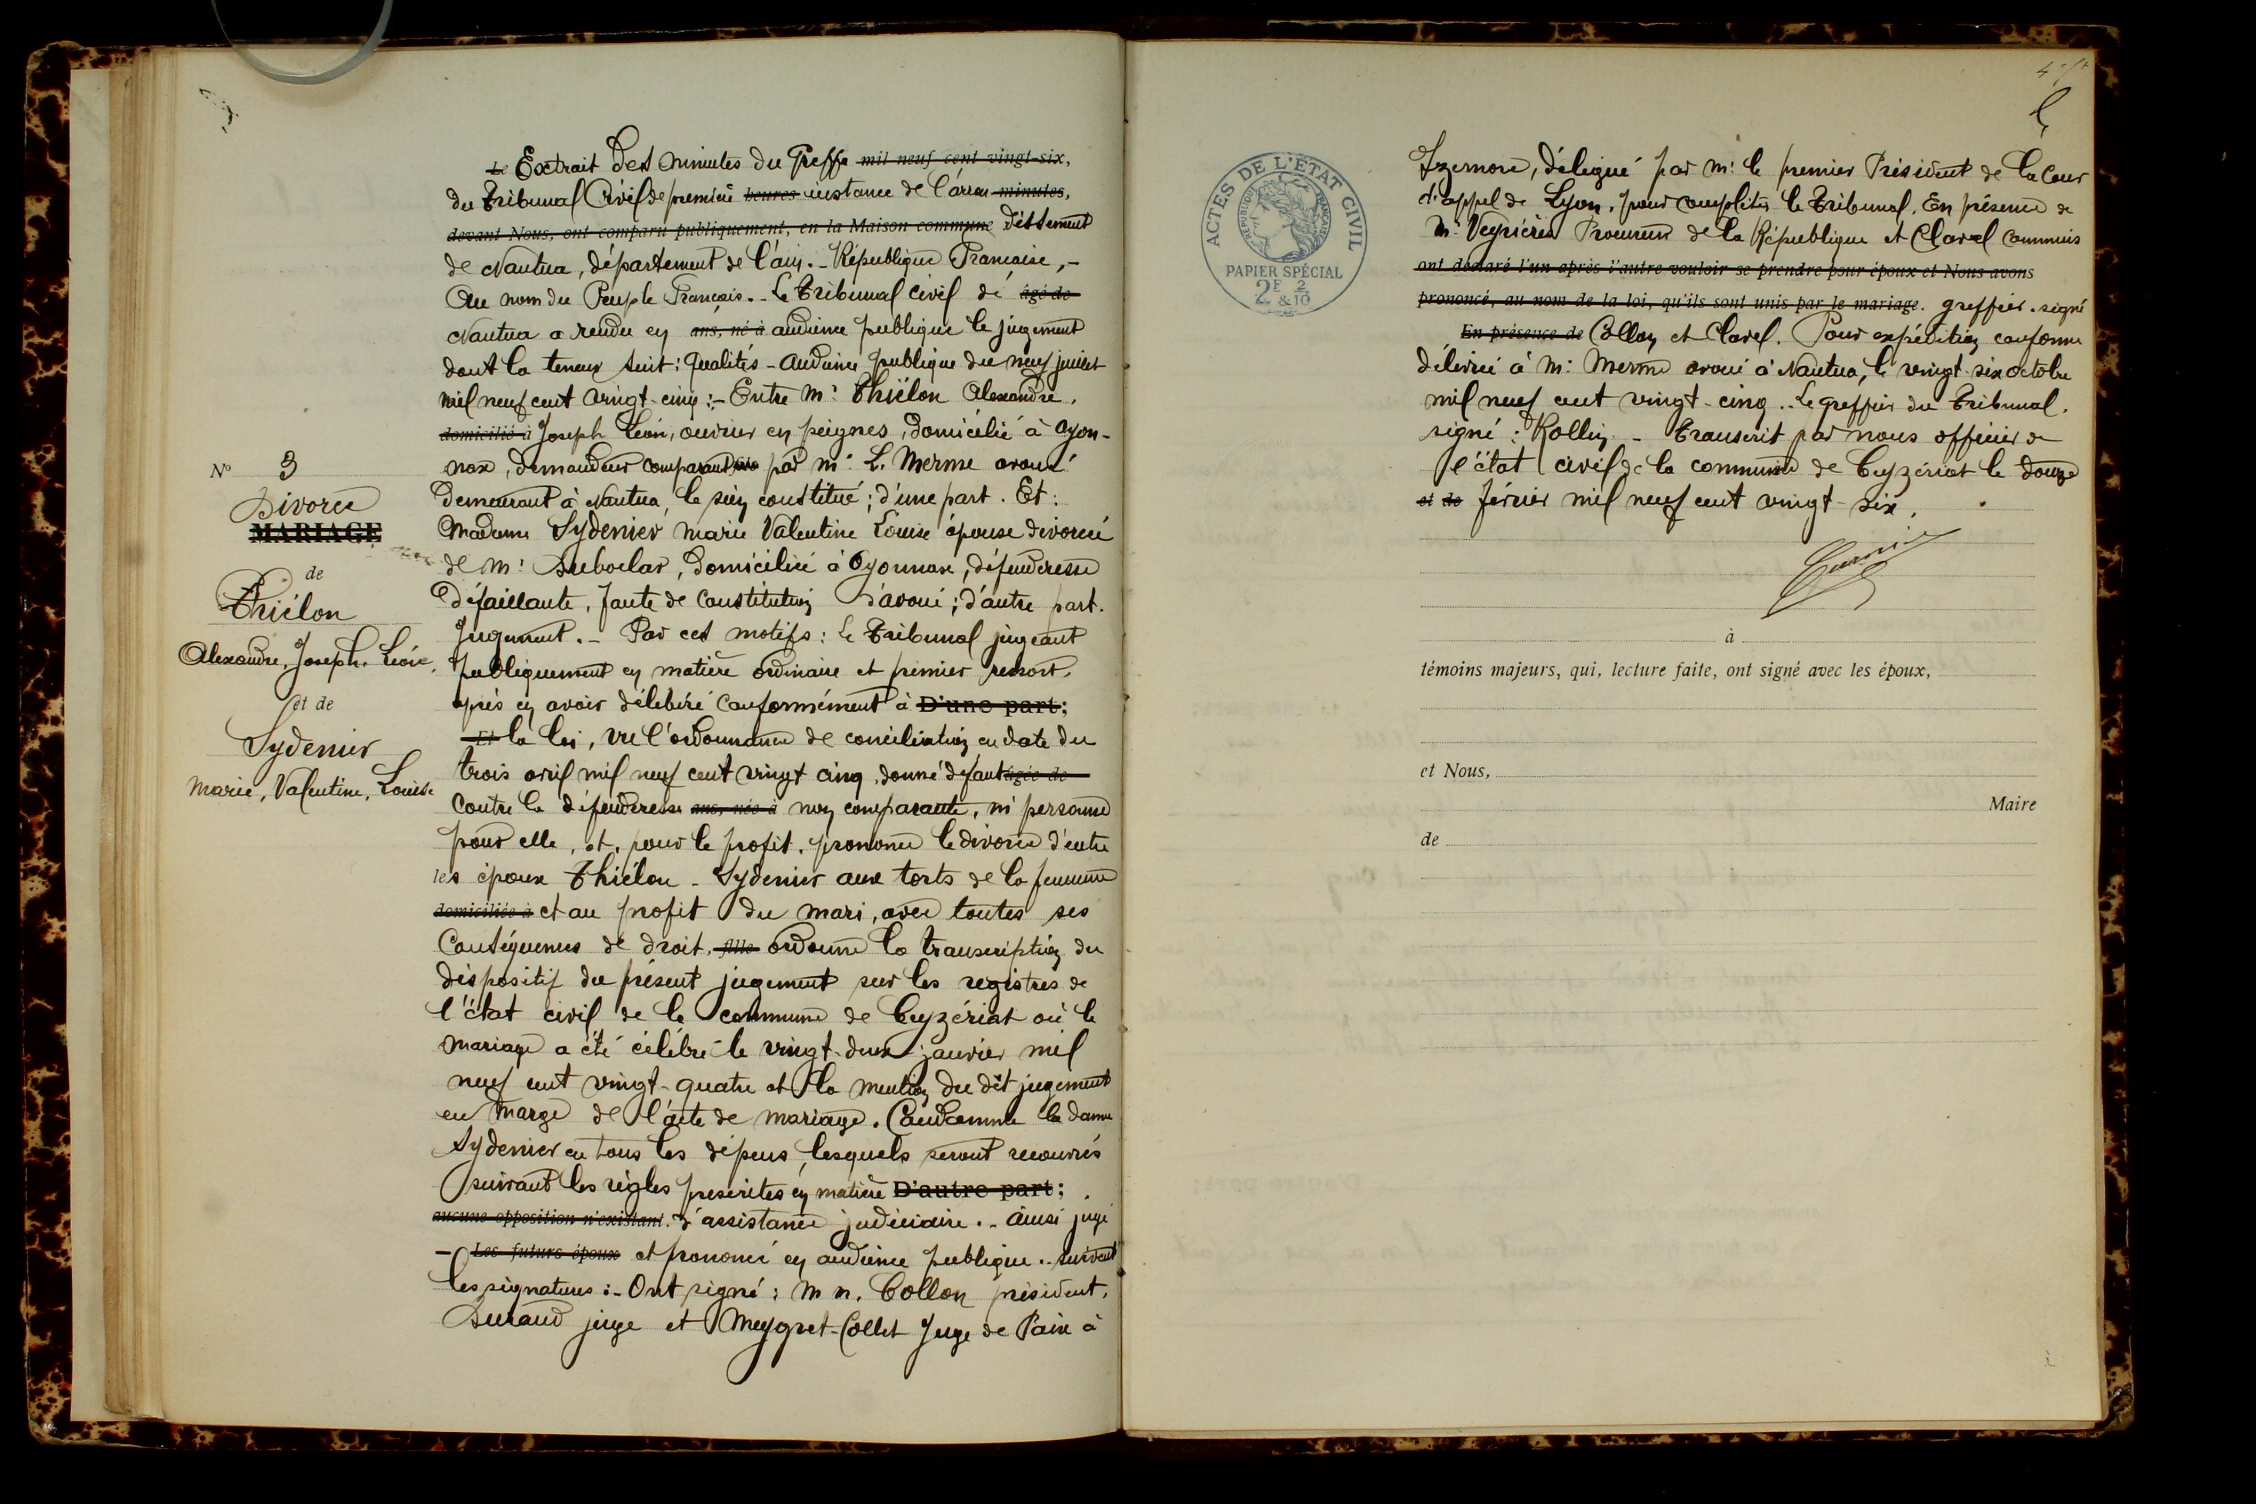 Le Extrait des minutes du Greffe mil neuf cent vingt-six,
du Tribunal Civil de première heures instance de l'arron minutes,
devant Nous, ont comparu publiquement, en la Maison commune dissement
de Nantua, département de l'ain. - République Française, -
Au nom du Peuple Français. - Le Tribunal civil de âgé de
Nantua a rendu en ans, né à audience publique le jugement
dont la teneur suit : Qualités - audience publique du neuf juillet
mil neuf cent vingt-cinq :- Entre Mr Thiélon Alexandre,
domicilié à Joseph Léon, ouvrier en peignes, domicilié à Oyon-
N° 3
nax, demandeur comparant par Me L. Merme avoué
Divorce
MARIAGE
de
Thiélon
Alexandre, Joseph, Léon,
et de
Sydenier
Marie, Valentine, Louise
demeurant à Nantua, le sien constitué ; d'une part. Et :
Madame Sydenier Marie Valentine Louise épouse divorcée
de Mr Duboclar, domiciliée à Oyonnax, défenderesse
défaillante, faute de constitution d'avoué ; d'autre part.
Jugement. - Par ces motifs : Le Tribunal jugeant
publiquement en matière ordinaire et premier ressort,
après en avoir délibéré conformément à D'une part ;
Et la loi, vu l'ordonnance de conciliation en date du
trois avril mil neuf cent vingt cinq, donne défaut âgée de
contre la défenderesse ans, née à non comparante, ni personne
pour elle, et, pour le profit, prononce le divorce d'entre
les époux Thiélon - Sydenier aux torts de la femme
domiciliée à et au profit du mari, avec toutes ses
conséquences de droit, fille ordonne la transcription du
dispositif du présent jugement sur les registres de
l'état civil de la commune de Ceyzériat où le
mariage a été célébré le vingt-deux janvier mil
neuf cent vingt-quatre et la mention du dit jugement
en marge de l'acte de mariage. Condamne la dame
Sydenier en tous les dépens, lesquels seront recouvrés
suivant les règles prescrites en matière D'autre part ;
aucune opposition n'existant. d'assistance judiciaire. - Ainsi jugé
- Les futurs époux et prononcé en audience publique. - suivent
les signatures :- Ont signé : M m. Collon président,
Durand juge et Meygret-Collet Juge de Paix à
ACTES DE L'ÉTAT CIVIL
RÉPUBLIQUE FRANÇAISE
PAPIER SPÉCIAL
2F & 2/10
Izernore, délégué par Mr le premier Président de la Cour
d'appel de Lyon, pour compléter le Tribunal. En présence de
Mr Veyrières Procureur de la République et Clavel commis
ont déclaré l'un après l'autre vouloir se prendre pour époux et Nous avons
prononcé, au nom de la loi, qu'ils sont unis par le mariage. greffier. signé
En présence de Collon et Clavel. Pour expédition conforme
délivrée à Me Merme avoué à Nantua, le vingt-six octobre
mil neuf cent vingt-cinq. - Le greffier du Tribunal.
signé : Rollin - Transcrit par nous officier de
l'état civil de la commune de Ceyzériat le douze
et de février mil neuf cent vingt-six.
à
témoins majeurs, qui, lecture faite, ont signé avec les époux,
et Nous,
Maire
de